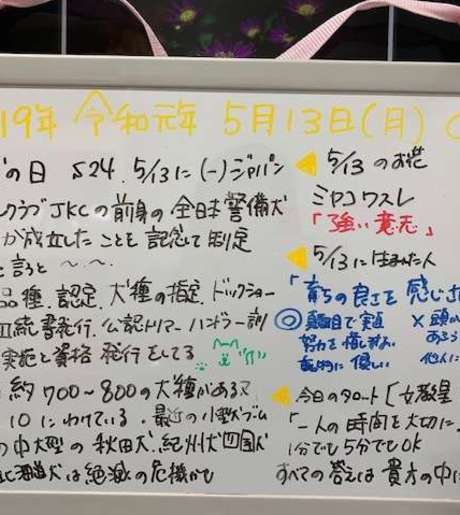 19年 令和元年 5月13日(月)
の日 S24. 5/13に(一)ジャパン
クラブJKCの前身の全日本警備犬
が成立したことを記念して制定
と言うと 〜〜.
品種.認定.犬種の指定.ドッグショー
血統書発行.公認トリマー ハンドラー
実施と資格発行をしてる
約700〜800の犬種がある
10にわけている.最近の小型犬ブーム
の中大型の秋田犬.紀州犬四国犬
北海道犬は絶滅の危機かも
5/13のお花
ミヤコワスレ
「強い意志」
5/13に生まれた人
「育ちの良さを感じさ
◎真面目で実直
努力を惜しまない
動物に優しい
×頭が
ある
他人に
今日のタロート[女教皇
「一人の時間を大切に
1分でも5分でもOK
すべての答えは貴方の中に